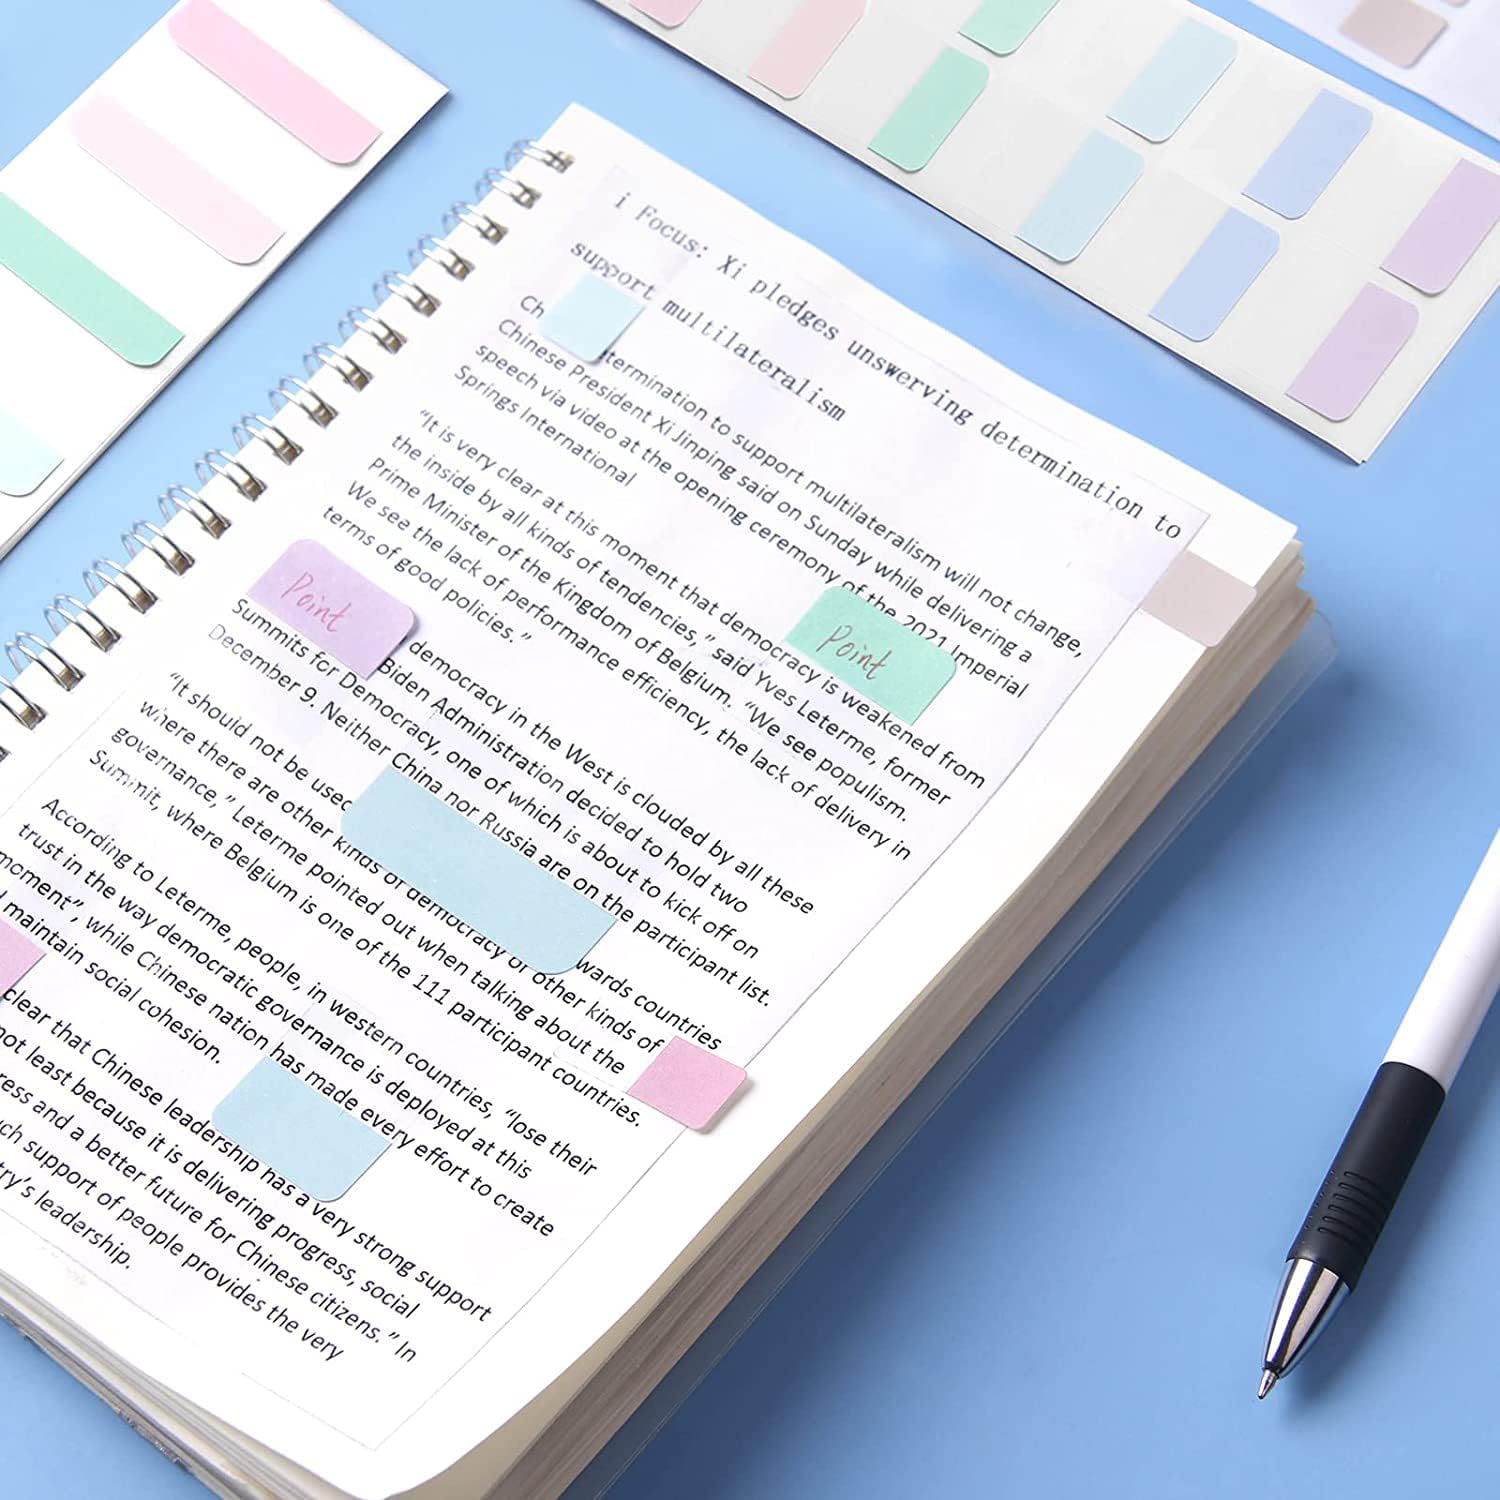 i Focus: Xi pledges unswerving determination to
support multilateralism
Ch termination to support multilateralism will not change,
Chinese President Xi Jinping said on Sunday while delivering a
speech via video at the opening ceremony of the 2021 Imperial
Springs International
“It is very clear at this moment that democracy is weakened from
the inside by all kinds of tendencies,” said Yves Leterme, former
Prime Minister of the Kingdom of Belgium. “We see populism.
We see the lack of performance efficiency, the lack of delivery in
terms of good policies.”
Point
Point
democracy in the West is clouded by all these
Biden Administration decided to hold two
Summits for Democracy, one of which is about to kick off on
December 9. Neither China nor Russia are on the participant list.
“It should not be used wards countries
where there are other kinds of democracy or other kinds of
governance,” Leterme pointed out when talking about the
Summit, where Belgium is one of the 111 participant countries.
According to Leterme, people, in western countries, “lose their
trust in the way democratic governance is deployed at this
moment”, while Chinese nation has made every effort to create
maintain social cohesion.
clear that Chinese leadership has a very strong support
not least because it is delivering progress, social
ress and a better future for Chinese citizens.” In
ch support of people provides the very
try’s leadership.